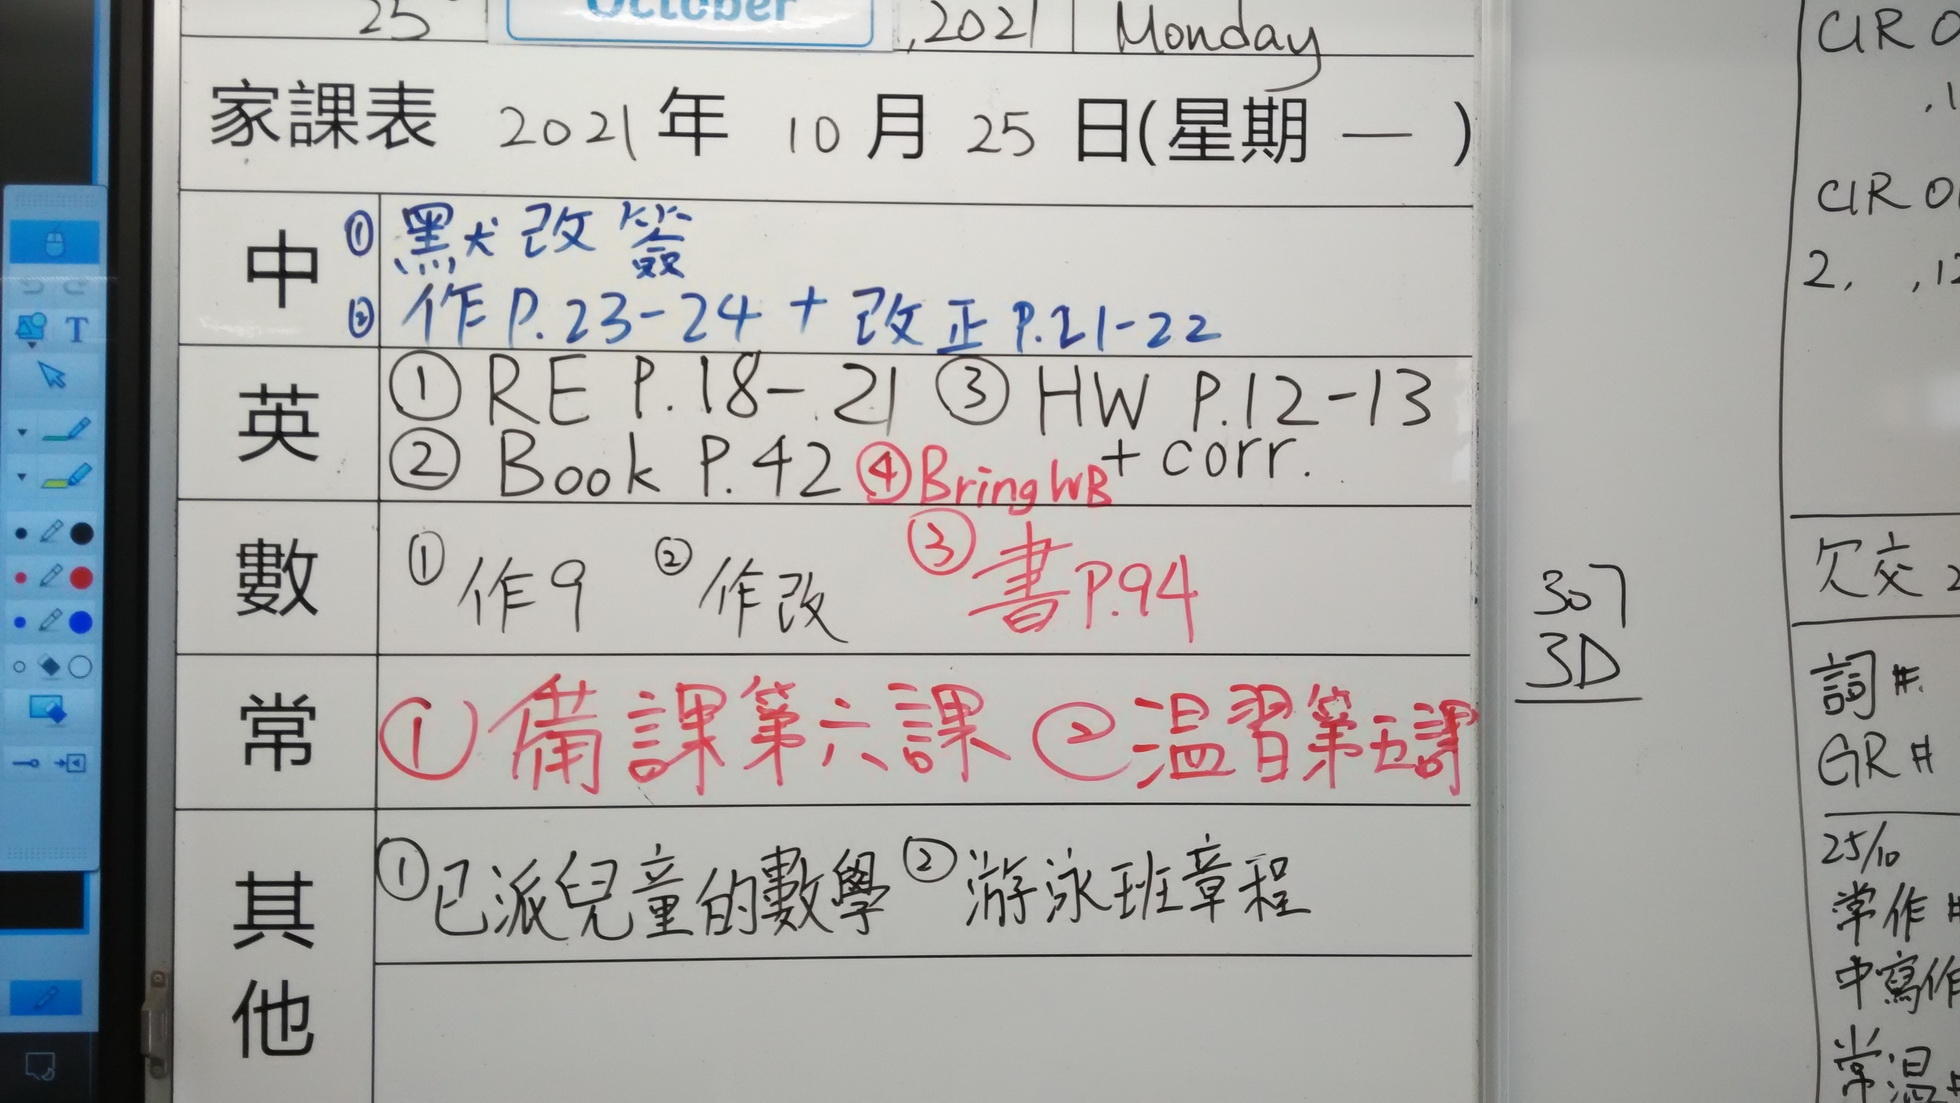 25 October ,2021 Monday
家課表 2021年 10月 25日(星期一)
中
① 默改簽
② 作P.23-24 + 改正P.21-22
英
① RE P.18-21 ③ HW P.12-13
② Book P.42 ④Bring WB + corr.
數
①作9 ②作改 ③書P.94
常
①備課第六課 ②温習第五課
其他
①已派兒童的數學 ②游泳班章程
T
307
3D
CIR
CIR
2, ,12
欠交
詞#
GR#
25/10
常作#
中寫作
常温